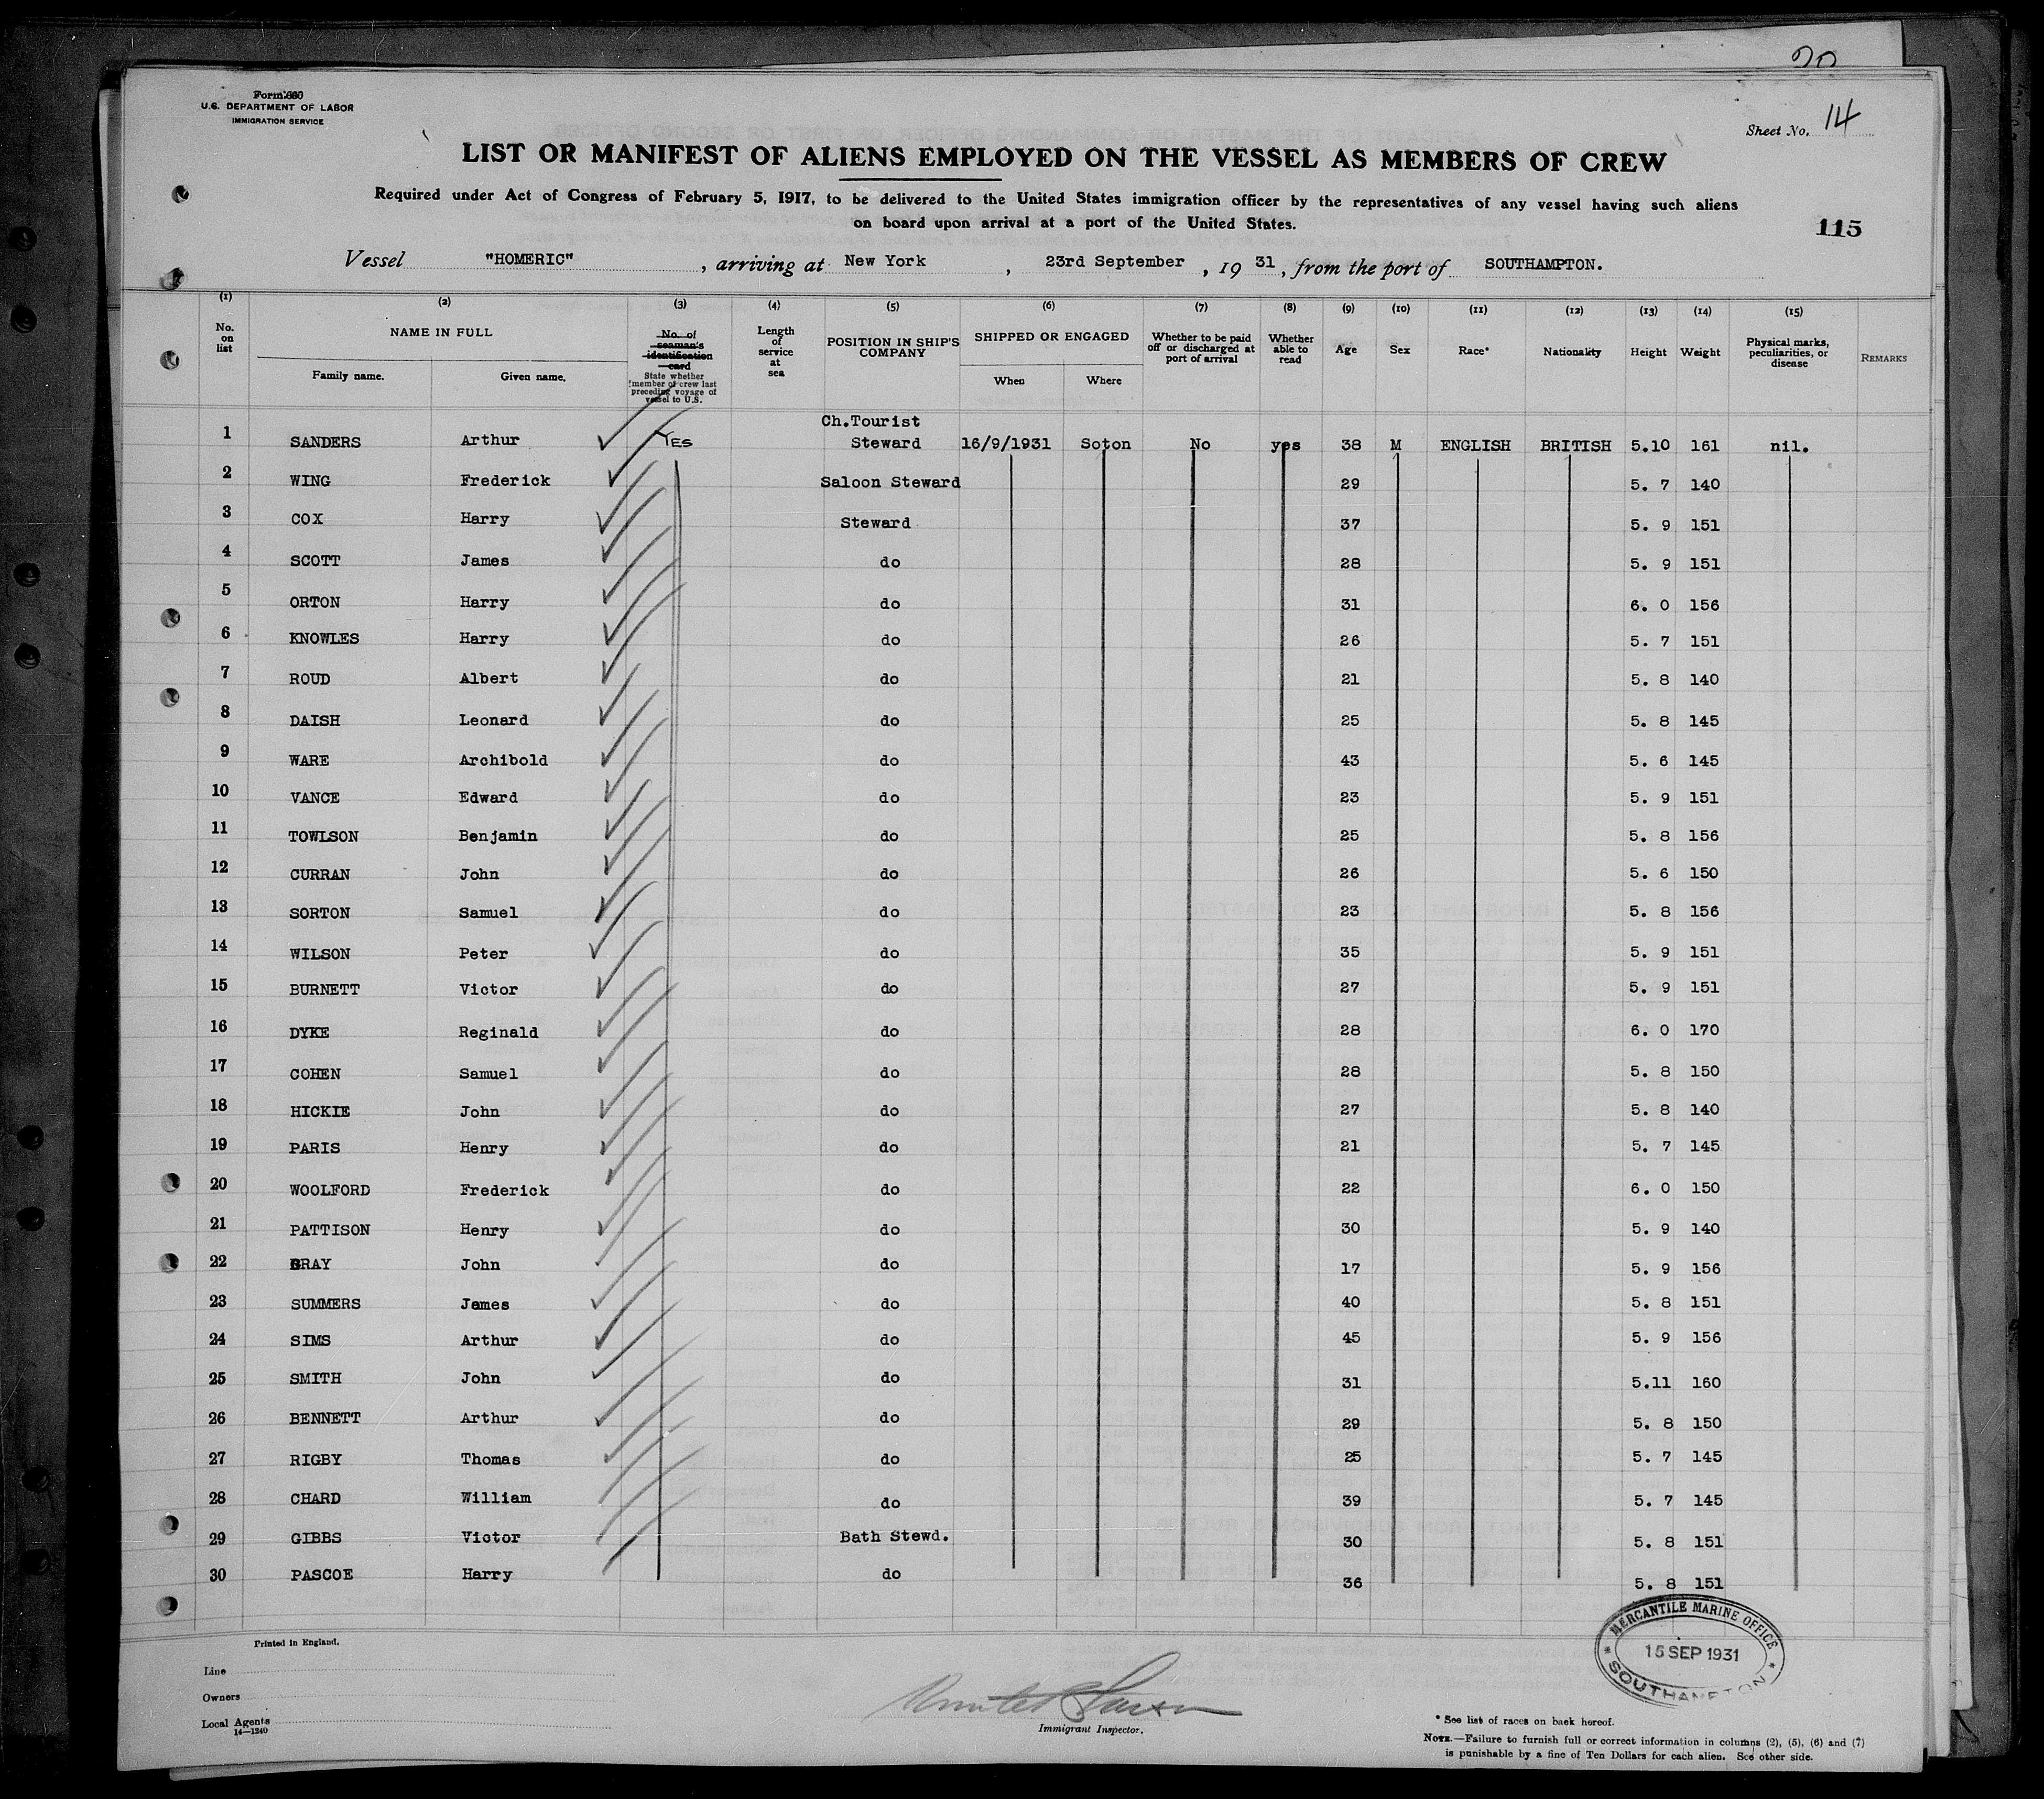 20
Form 680
U.S. DEPARTMENT OF LABOR
IMMIGRATION SERVICE
Sheet No. 14
LIST OR MANIFEST OF ALIENS EMPLOYED ON THE VESSEL AS MEMBERS OF CREW
Required under Act of Congress of February 5, 1917, to be delivered to the United States immigration officer by the representatives of any vessel having such aliens
on board upon arrival at a port of the United States.
115
Vessel "HOMERIC", arriving at New York, 23rd September, 1931, from the port of SOUTHAMPTON.
(1) (2) (3) (4) (5) (6) (7) (8) (9) (10) (11) (12) (13) (14) (15)
No. on list NAME IN FULL Family name. Given name. No. of seaman's identification card State whether member of crew last preceding voyage of vessel to U.S. Length of service at sea POSITION IN SHIP'S COMPANY SHIPPED OR ENGAGED When Where Whether to be paid off or discharged at port of arrival Whether able to read Age Sex Race* Nationality Height Weight Physical marks, peculiarities, or disease REMARKS
1 SANDERS Arthur YES Ch.Tourist Steward 16/9/1931 Soton No yes 38 M ENGLISH BRITISH 5.10 161 nil.
2 WING Frederick Saloon Steward 29 5. 7 140
3 COX Harry Steward 37 5. 9 151
4 SCOTT James do 28 5. 9 151
5 ORTON Harry do 31 6. 0 156
6 KNOWLES Harry do 26 5. 7 151
7 ROUD Albert do 21 5. 8 140
8 DAISH Leonard do 25 5. 8 145
9 WARE Archibold do 43 5. 6 145
10 VANCE Edward do 23 5. 9 151
11 TOWLSON Benjamin do 25 5. 8 156
12 CURRAN John do 26 5. 6 150
13 SORTON Samuel do 23 5. 8 156
14 WILSON Peter do 35 5. 9 151
15 BURNETT Victor do 27 5. 9 151
16 DYKE Reginald do 28 6. 0 170
17 COHEN Samuel do 28 5. 8 150
18 HICKIE John do 27 5. 8 140
19 PARIS Henry do 21 5. 7 145
20 WOOLFORD Frederick do 22 6. 0 150
21 PATTISON Henry do 30 5. 9 140
22 John do 17 5. 9 156
23 SUMMERS James do 40 5. 8 151
24 SIMS Arthur do 45 5. 9 156
25 SMITH John do 31 5.11 160
26 BENNETT Arthur do 29 5. 8 150
27 RIGBY Thomas do 25 5. 7 145
28 CHARD William do 39 5. 7 145
29 GIBBS Victor Bath Stewd. 30 5. 8 151
30 PASCOE Harry do 36 5. 8 151
MERCANTILE MARINE OFFICE
15 SEP 1931
SOUTHAMPTON
Printed in England.
Line
Owners
Local Agents
14—1240
Immigrant Inspector.
* See list of races on back hereof.
NOTE.—Failure to furnish full or correct information in columns (2), (5), (6) and (7)
is punishable by a fine of Ten Dollars for each alien. See other side.